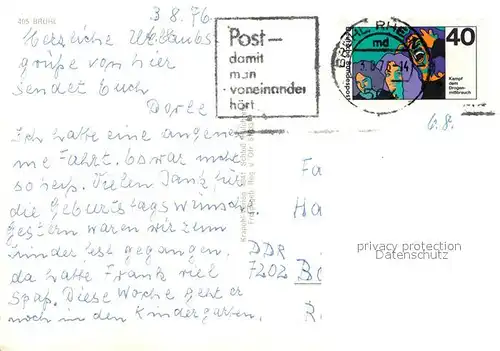 405 BRÜHL
3 8. 76
Herzliche Urlaubs
grüße von hier
sendet Euch
Dorle
Ich hatte eine angeneh
me Fahrt. Es war nicht
so heiß. Vielen Dank für
die Geburtstagswünsche.
Gestern waren wir zum
Kinderfest gegangen,
da hatte Frank viel
Spaß. Diese Woche geht er
noch in den Kindergarten.
Post–
damit
man
voneinander
hört
BRÜHL, RHEINL
md
Deutsche Bundespost
40
Kampf
dem
Drogen-
mißbrauch
6.8.
Fa
Ha
DDR
7202 B
R
privacy protection
Datenschutz